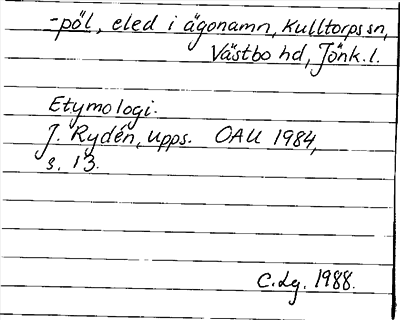 -pöl, eled i ägonamn, Kulltorps sn,
Västbo hd, Jönk.l.
Etymologi.
J. Rydén, Upps. OAU 1984,
s. 13.
C.dg. 1988.